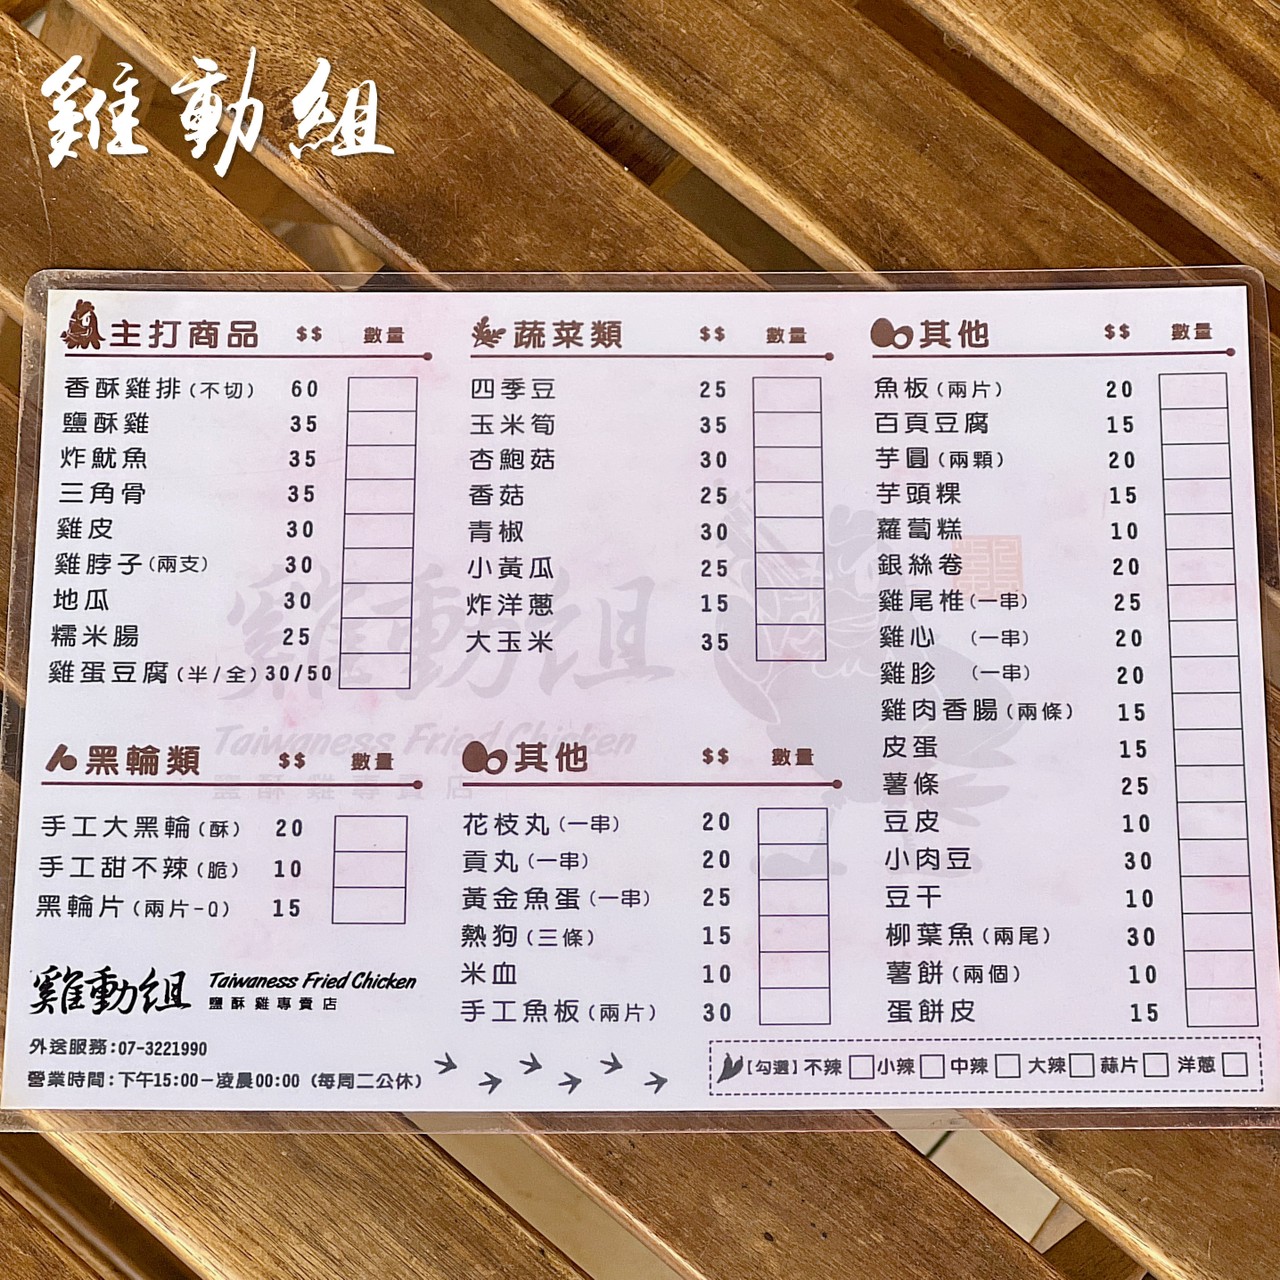 雞動組
主打商品 $$ 數量
香酥雞排(不切) 60
鹽酥雞 35
炸魷魚 35
三角骨 35
雞皮 30
雞脖子(兩支) 30
地瓜 30
糯米腸 25
雞蛋豆腐(半/全) 30/50
黑輪類 $$ 數量
手工大黑輪(酥) 20
手工甜不辣(脆) 10
黑輪片(兩片-Q) 15
蔬菜類 $$ 數量
四季豆 25
玉米筍 35
杏鮑菇 30
香菇 25
青椒 30
小黃瓜 25
炸洋蔥 15
大玉米 35
其他 $$ 數量
花枝丸(一串) 20
貢丸(一串) 20
黃金魚蛋(一串) 25
熱狗(三條) 15
米血 10
手工魚板(兩片) 30
其他 $$ 數量
魚板(兩片) 20
百頁豆腐 15
芋圓(兩顆) 20
芋頭粿 15
蘿蔔糕 10
銀絲卷 20
雞尾椎(一串) 25
雞心 (一串) 20
雞胗 (一串) 20
雞肉香腸(兩條) 15
皮蛋 15
薯條 25
豆皮 10
小肉豆 30
豆干 10
柳葉魚(兩尾) 30
薯餅(兩個) 10
蛋餅皮 15
雞動組 Taiwaness Fried Chicken
Taiwaness Fried Chicken
鹽酥雞專賣店
雞動組
鹽酥雞專賣店
外送服務:07-3221990
營業時間:下午15:00－凌晨00:00 (每周二公休)
【勾選】不辣 小辣 中辣 大辣 蒜片 洋蔥